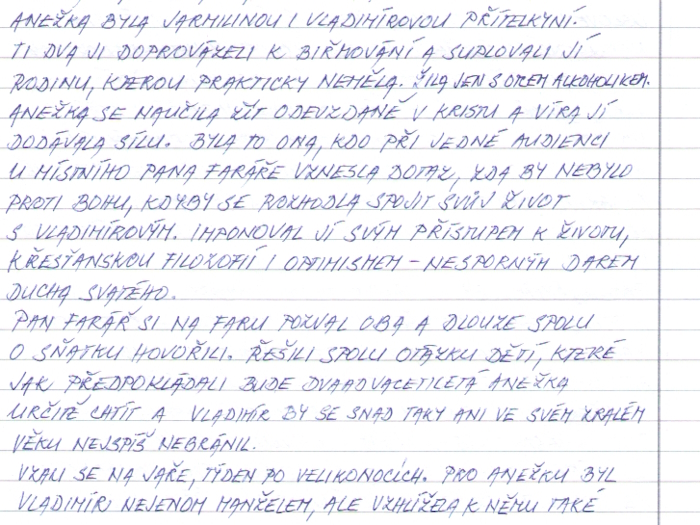 ANEŽKA BYLA JARMILINOU I VLADIMÍROVOU PŘÍTELKYNÍ.
TI DVA JI DOPROVÁZELI K BIŘMOVÁNÍ A SUPLOVALI JÍ
RODINU, KTEROU PRAKTICKY NEMĚLA. ŽILA JEN S OTCEM ALKOHOLIKEM.
ANEŽKA SE NAUČILA ŽÍT ODEVZDANĚ V KRISTU A VÍRA JÍ
DODÁVALA SÍLU. BYLA TO ONA, KDO PŘI JEDNÉ AUDIENCI
U MÍSTNÍHO PANA FARÁŘE VZNESLA DOTAZ, ZDA BY NEBYLO
PROTI BOHU, KDYBY SE ROZHODLA SPOJIT SVŮJ ŽIVOT
S VLADIMÍROVÝM. IMPONOVAL JÍ SVÝM PŘÍSTUPEM K ŽIVOTU,
KŘESŤANSKOU FILOZOFIÍ I OPTIMISMEM - NESPORNÝM DAREM
DUCHA SVATÉHO.
PAN FARÁŘ SI NA FARU POZVAL OBA A DLOUZE SPOLU
O SŇATKU HOVOŘILI. ŘEŠILI SPOLU OTÁZKU DĚTÍ, KTERÉ
JAK PŘEDPOKLÁDALI BUDE DVAADVACETILETÁ ANEŽKA
URČITĚ CHTÍT A VLADIMÍR BY SE SNAD TAKY ANI VE SVÉM ZRALÉM
VĚKU NEJSPÍŠ NEBRÁNIL.
VZALI SE NA JAŘE, TÝDEN PO VELIKONOCÍCH. PRO ANEŽKU BYL
VLADIMÍR NEJENOM MANŽELEM, ALE VZHLÍŽELA K NĚMU TAKÉ